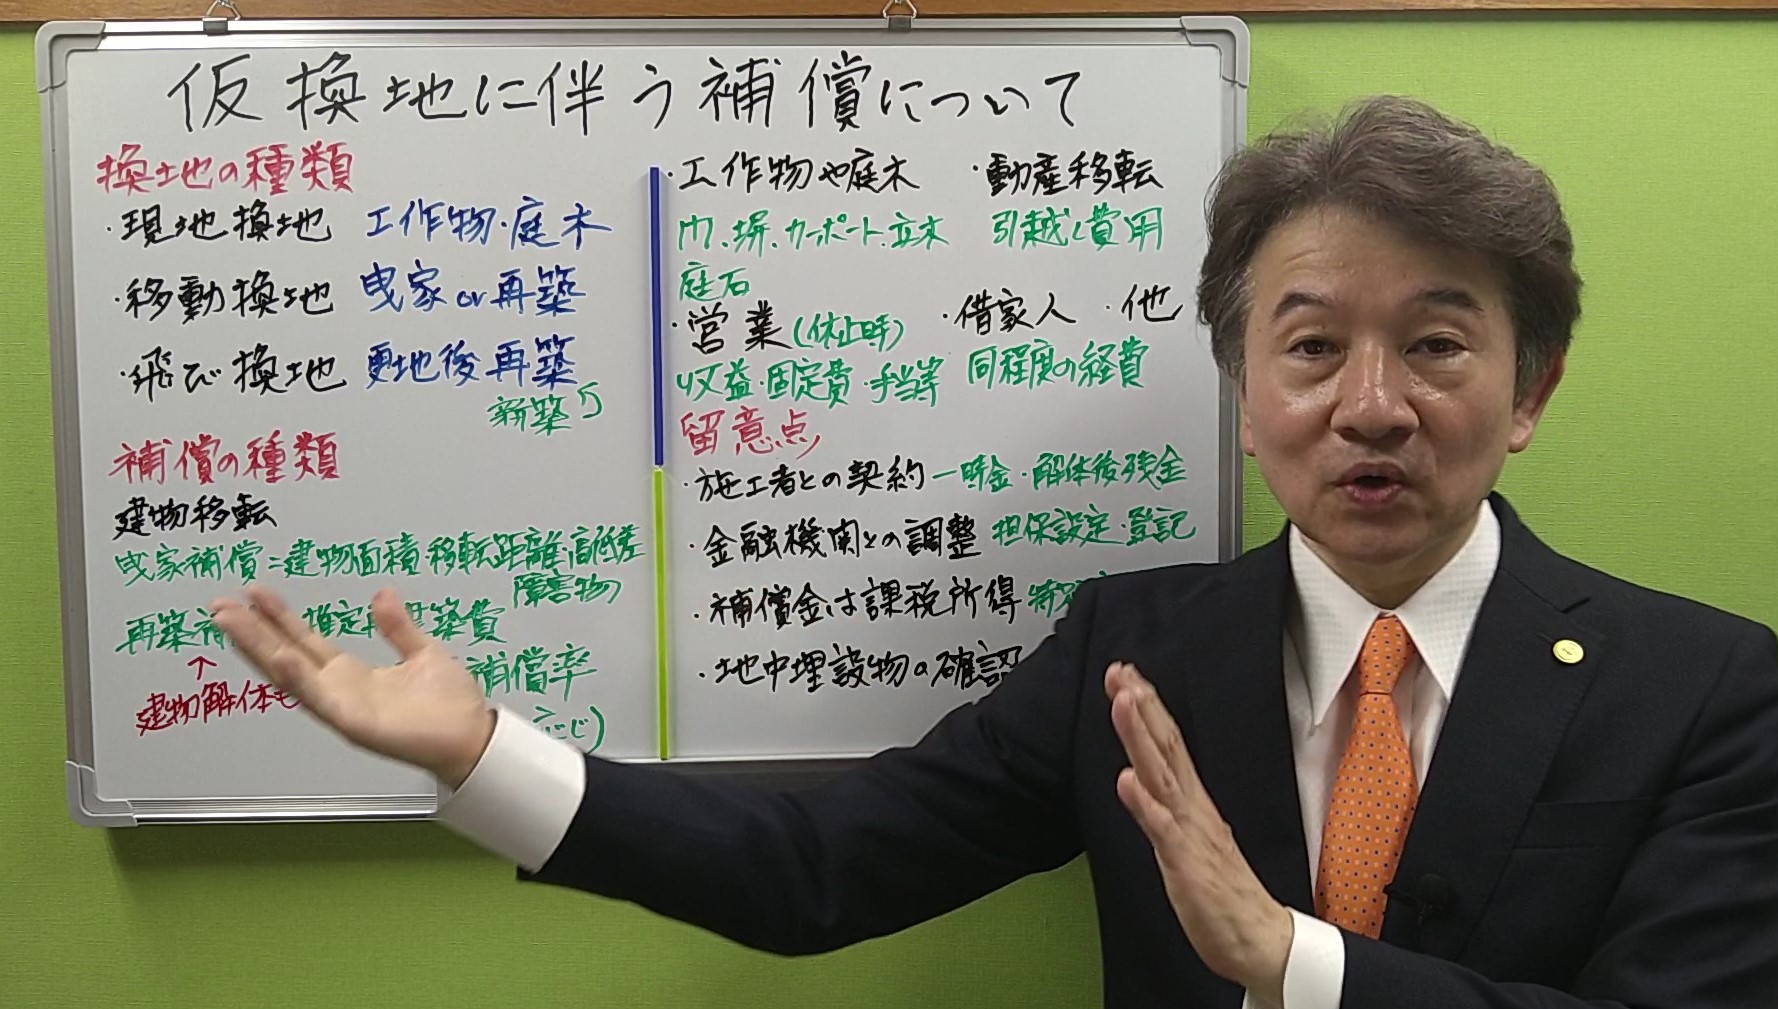 仮換地に伴う補償について
換地の種類
・現地換地 工作物・庭木
・移動換地 曳家or再築
・飛び換地 更地後再築
新築
補償の種類
建物移転
曳家補償:建物面積 移転距離 高低差
障害物
再築補 推定再 築費
補償率
建物解体も
応じ)
・工作物や庭木 ・動産移転
門、塀、カーポート、立木 引越し費用
庭石
・営業(休止時) ・借家人 ・他
収益・固定費・手当等 同程度の経費
留意点
・施工者との契約 一時金・解体後残金
・金融機関との調整 担保設定・登記
・補償金は課税所得 特別
・地中埋設物の確認